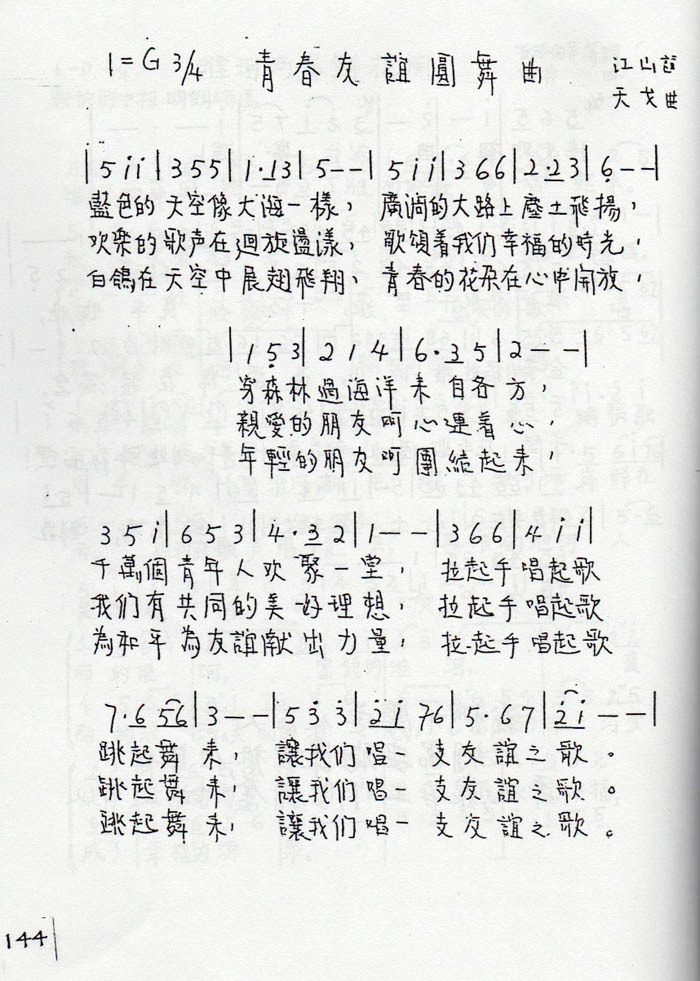 1=G 3/4 青春友誼圓舞曲 江山詞
天戈曲
|5 i i|3 5 5|1·1 3|5 - -|5 i i|3 6 6|2·2 3|6 - -|
藍色的天空像大海一樣， 廣濶的大路上塵土飛揚，
欢樂的歌声在迴旋盪漾， 歌頌着我们幸福的時光，
白鴿在天空中展翅飛翔、 青春的花朶在心中開放，
|1 5 3|2 1 4|6·3 5|2 - -|
穿森林過海洋来自各方，
親愛的朋友呵心連着心，
年輕的朋友呵團結起来，
3 5 i|6 5 3|4·3 2|1 - -|3 6 6|4 i i|
千萬個青年人欢聚一堂， 拉起手唱起歌
我们有共同的美好理想， 拉起手唱起歌
為和平為友誼献出力量， 拉起手唱起歌
7·6 5 6|3 - -|5 3 3|2 i 7 6|5·6 7|2 i - -|
跳起舞来， 讓我们唱一支友誼之歌。
跳起舞来， 讓我们唱一支友誼之歌。
跳起舞来， 讓我们唱一支友誼之歌。
144